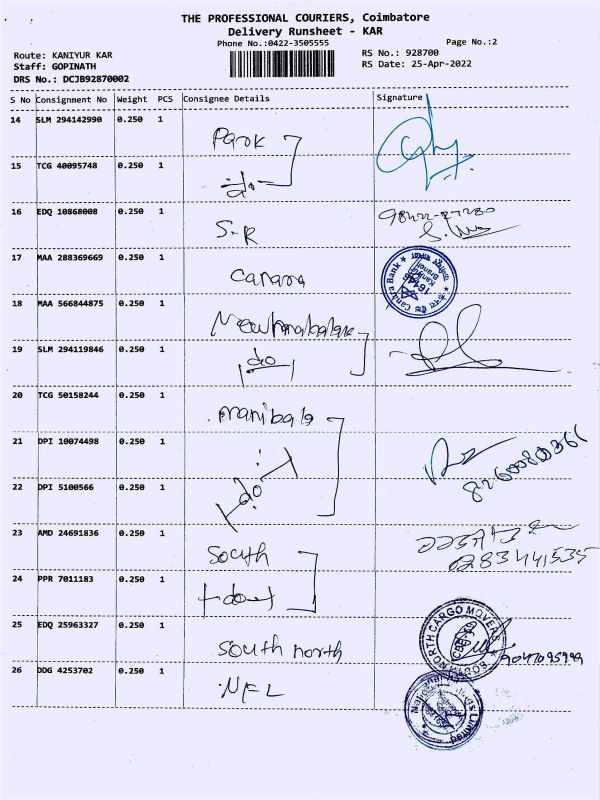 THE PROFESSIONAL COURIERS, Coimbatore
Delivery Runsheet - KAR
Phone No.:0422-3505555
Page No.:2
Route: KANIYUR KAR
RS No.: 928700
Staff: GOPINATH
RS Date: 25-Apr-2022
DRS No.: DCJB92870002
S No Consignment No Weight PCS Consignee Details Signature
14 SLM 294142990 0.250 1 Park
15 TCG 40095748 0.250 1 do
16 EDQ 10868008 0.250 1 S-R
17 MAA 288369669 0.250 1 Canara
Canara Bank
18 MAA 566844875 0.250 1
19 SLM 294119846 0.250 1 do
20 TCG 50158244 0.250 1 manibala
21 DPI 10074498 0.250 1
22 DPI 5100566 0.250 1 do
23 AMD 24691836 0.250 1 South
24 PPR 7011183 0.250 1 do
25 EDQ 25963327 0.250 1 South north
SOUTH NORTH CARGO MOVERS
26 DDG 4253702 0.250 1 NFL